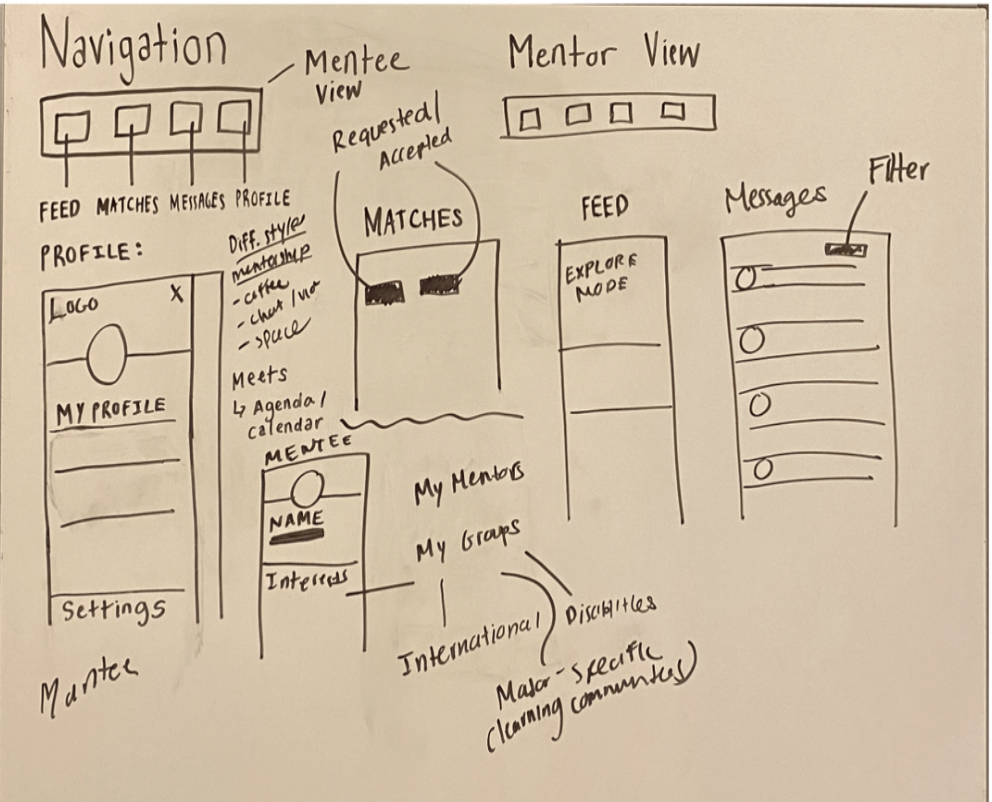 Navigation
Mentee
View
Mentor View
FEED MATCHES MESSAGES PROFILE
Requested/
Accepted
PROFILE:
LOGO X
MY PROFILE
Settings
Mantee
Diff. styles
mentorship
- coffee
- chat /
- space
Meets
↳ Agenda/
calendar
MATCHES
MENTEE
NAME
Interests
My Mentors
My Groups
International
Disabilities
Major-specific
(learning communities)
FEED
EXPLORE
MODE
Messages
Filter